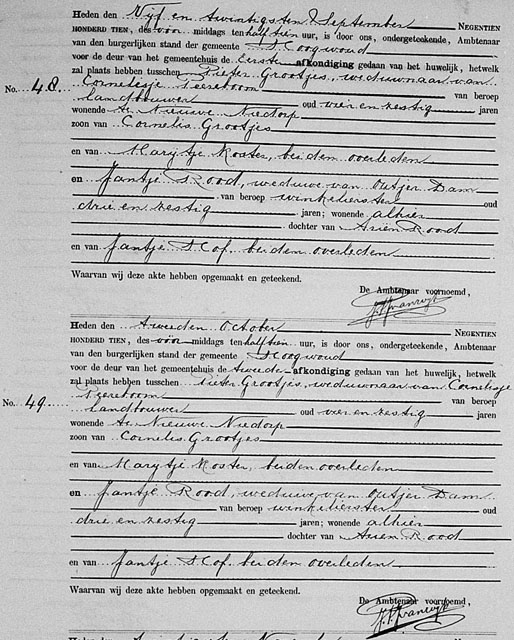 Heden den Vijf en twintigsten September NEGENTIEN
HONDERD TIEN, des vóór middags ten half tien uur, is door ons, ondergeteekende, Ambtenaar
van den burgerlijken stand der gemeente Hoogwoud
voor de deur van het gemeentehuis de Eerste afkondiging gedaan van het huwelijk, hetwelk
zal plaats hebben tusschen Pieter Grootjes, weduwnaar van
No. 48. Cornelisje Teereboom van beroep
landbouwer oud vier en zestig jaren
wonende te Nieuwe Niedorp
zoon van Cornelis Grootjes
en van Marijtje Koster, beiden overleden
en Jantje Rood, weduwe van Outjer Dam
van beroep winkelierster oud
drie en zestig jaren; wonende alhier
dochter van Arien Rood
en van Jantje Hof, beiden overleden
Waarvan wij deze akte hebben opgemaakt en geteekend.
De Ambtenaar voornoemd,
Heden den tweeden October NEGENTIEN
HONDERD TIEN, des vóór middags ten half tien uur, is door ons, ondergeteekende, Ambtenaar
van den burgerlijken stand der gemeente Hoogwoud
voor de deur van het gemeentehuis de tweede afkondiging gedaan van het huwelijk, hetwelk
zal plaats hebben tusschen Pieter Grootjes, weduwnaar van Cornelisje
Teereboom van beroep
No. 49. landbouwer oud vier en zestig jaren
wonende te Nieuwe Niedorp
zoon van Cornelis Grootjes
en van Marijtje Koster, beiden overleden
en Jantje Rood, weduwe van Outjer Dam
van beroep winkelierster oud
drie en zestig jaren; wonende alhier
dochter van Arien Rood
en van Jantje Hof, beiden overleden
Waarvan wij deze akte hebben opgemaakt en geteekend.
De Ambtenaar voornoemd,